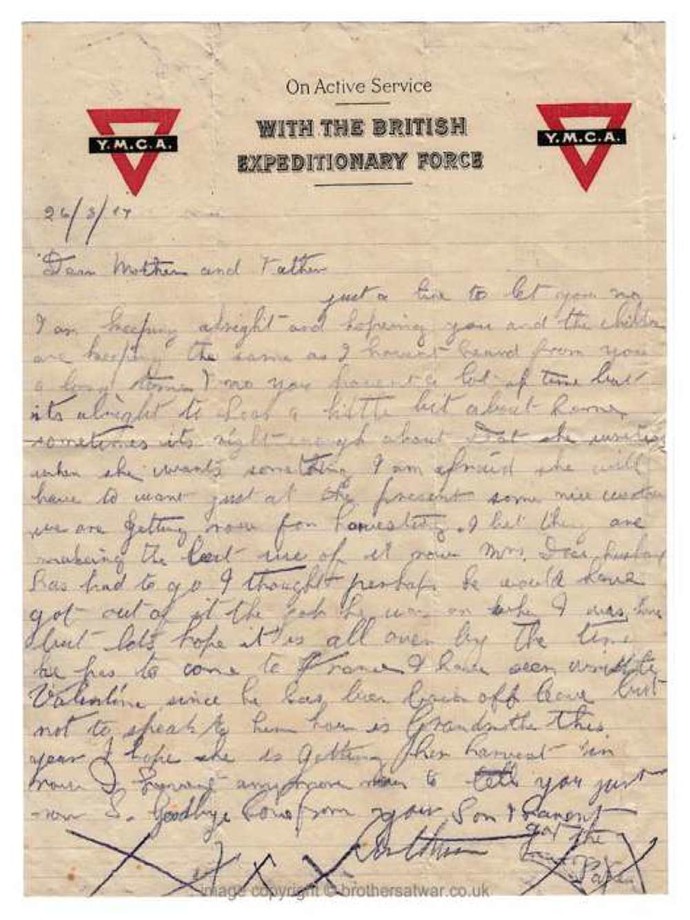 On Active Service
WITH THE BRITISH
EXPEDITIONARY FORCE
Y.M.C.A.
Y.M.C.A.
26/8/17
Dear Mother and Father
just a line to let you no
I am keeping alright and hopeing you and the children
are keeping the same as I havent heard from you
a long time I no you havent a lot of time but
its alright to hear a little bit about home
sometimes its right enough about she
when she wants something I am afraid she will
have to want just at the present some nice weather
we are getting now for harvesting I bet they are
makeing the best use of it now Mrs. husband
has had to go I thought perhaps he would have
got out of it the job he was on when I was home
but lets hope it is all over by the time
he has to come to France I have seen
Valentine since he has been off leave but
not to speak to him how is Grandmother this
year I hope she is getting her harvest in
now I havent anymore to tell you just
now So Goodbye Love from your Son I havent
got the
Arthur
Paper
image copyright © brothersatwar.co.uk